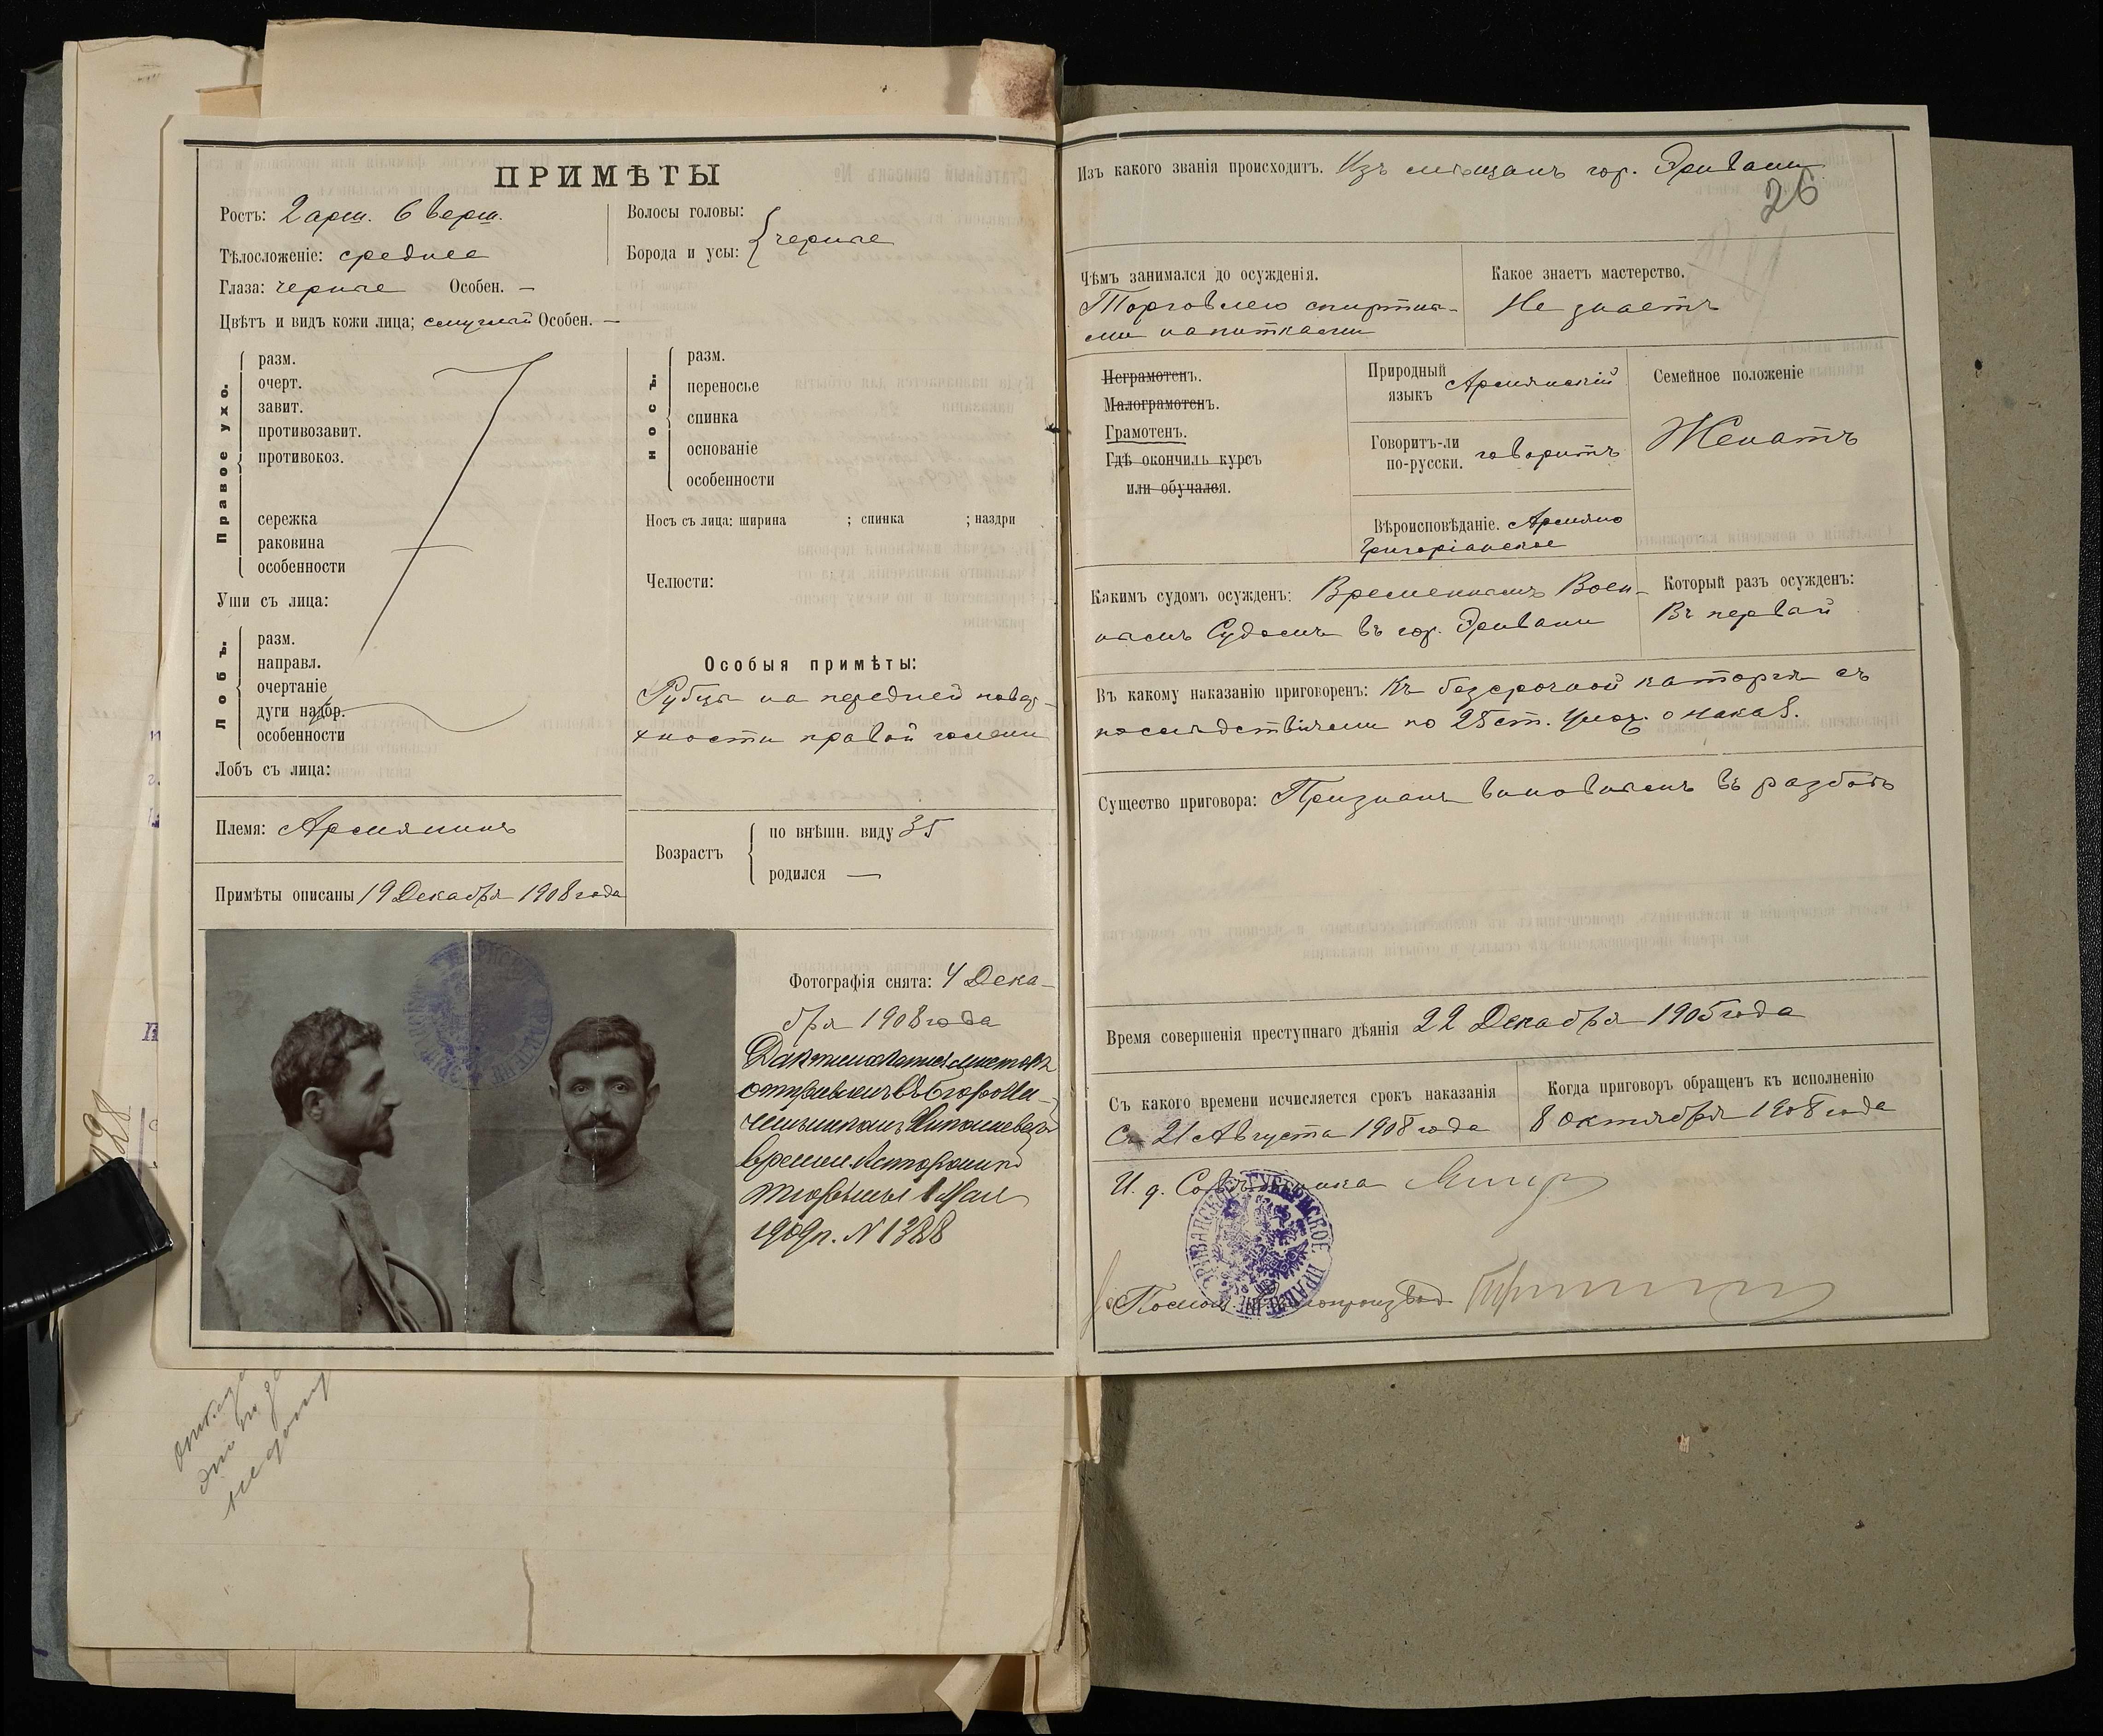 ПРИМѢТЫ
Ростъ: 2 арш. 6 верш.
Тѣлосложеніе: среднее
Глаза: черные Особен. —
Волосы головы:
Борода и усы: черные
Цвѣтъ и видъ кожи лица; смуглый Особен. —
Правое ухо.
разм.
очерт.
завит.
противозавит.
противокоз.
сережка
раковина
особенности
Уши съ лица:
Лобъ.
разм.
направл.
очертаніе
дуги надбр.
особенности
Лобъ съ лица:
Племя: Армянинъ
Примѣты описаны 19 Декабря 1908 года
Носъ.
разм.
переносье
спинка
основаніе
особенности
Носъ съ лица: ширина ; спинка ; наздри
Челюсти:
Особыя примѣты:
Рубцы на передней повер-
хности правой голени
Возрастъ
по внѣшн. виду 35
родился —
Фотографія снята: 4 Дека-
бря 1908 года
времен. 
1909 г. № 1388
Изъ какого званія происходитъ. Изъ мѣщанъ гор. Эривани
26
Чѣмъ занимался до осужденія.
Торговлею спиртны-
ми напитками
Какое знаетъ мастерство.
Не знаетъ
Неграмотенъ.
Малограмотенъ.
Грамотенъ.
Гдѣ окончилъ курсъ
или обучался.
Природный
языкъ Армянскій
Говоритъ-ли
по-русски. говоритъ
Вѣроисповѣданіе. Армяно
Григоріанское
Семейное положеніе
Женатъ
Какимъ судомъ осужденъ: Временнымъ Воен-
нымъ Судомъ въ гор. Эривани
Который разъ осужденъ:
Въ первый
Къ какому наказанію приговоренъ: Къ безсрочной каторгѣ съ
послѣдствіями по 25 ст. Улож. о наказ.
Существо приговора: Признанъ виновнымъ въ разбоѣ
Время совершенія преступнаго дѣянія 22 Декабря 1905 года
Съ какого времени исчисляется срокъ наказанія
Съ 21 Августа 1908 года
Когда приговоръ обращенъ къ исполненію
8 Октября 1908 года
И. д. Совѣтника
ЭРИВАНСКОЕ ГУБЕРНСКОЕ ПРАВЛЕНІЕ
Помощ. Дѣлопроизвод.